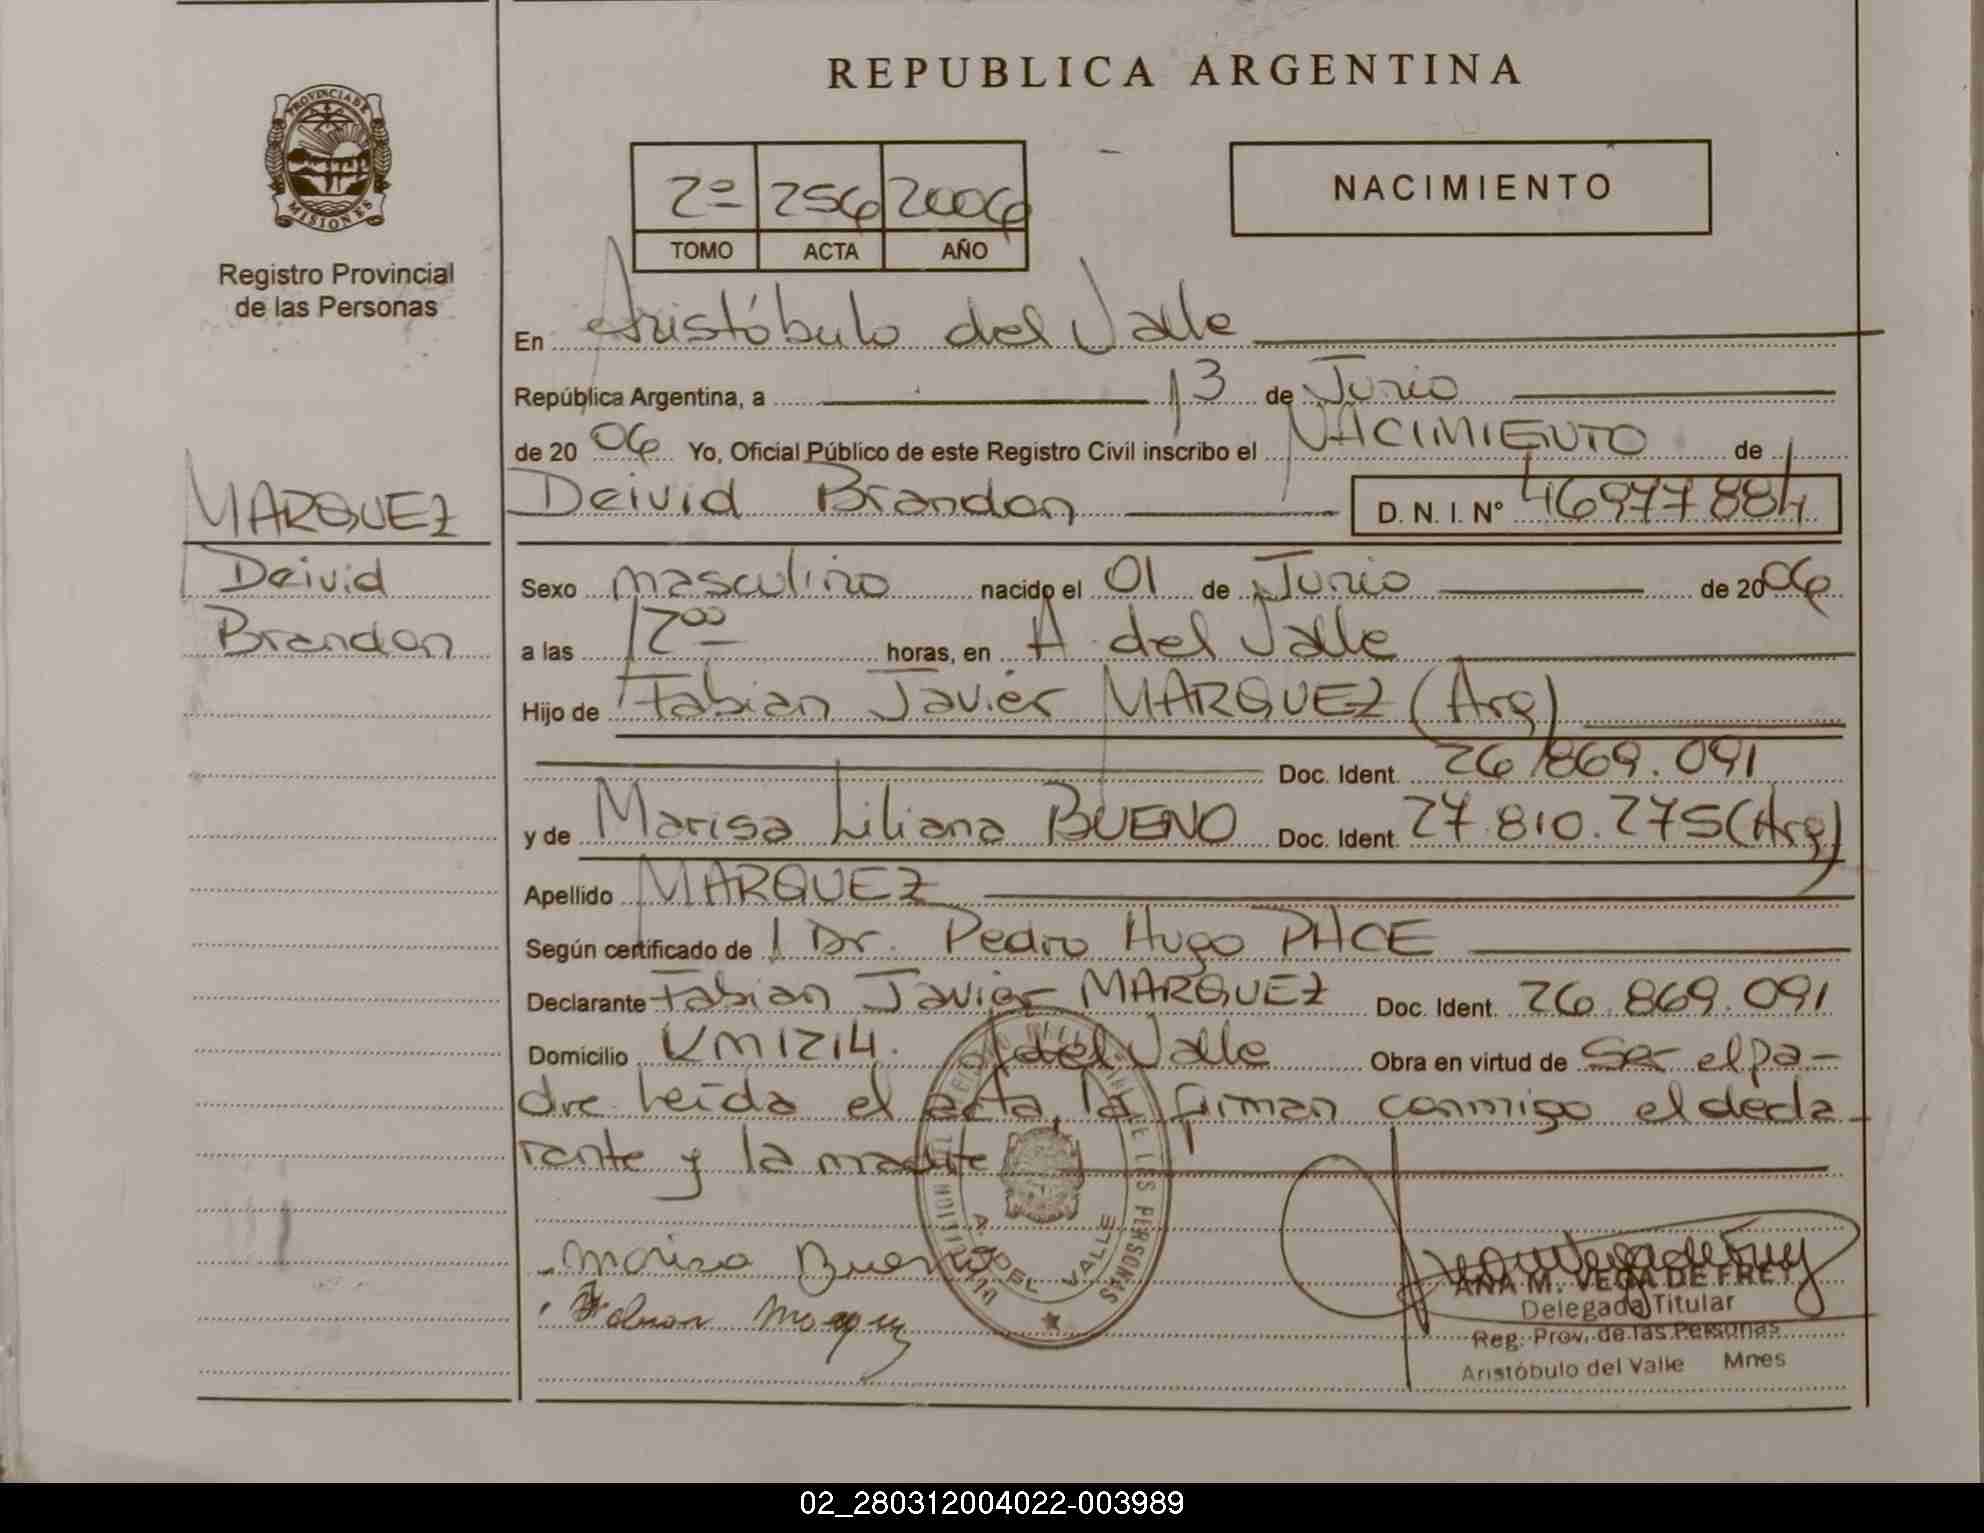 REPUBLICA ARGENTINA
PROVINCIA DE MISIONES
Registro Provincial
de las Personas
2º 256 2006
TOMO ACTA AÑO
NACIMIENTO
En Aristóbulo del Valle
República Argentina, a 13 de Junio
de 2006 Yo, Oficial Público de este Registro Civil inscribo el NACIMIENTO de
Deivid Brandon D. N. I. Nº 46977884
MARQUEZ
Deivid
Brandon
Sexo masculino nacido el 01 de Junio de 2006
a las 17⁰⁰ horas, en A. del Valle
Hijo de Fabian Javier MARQUEZ (Arg)
Doc. Ident. 26.869.091
y de Marisa Liliana BUENO Doc. Ident. 27.810.275 (Arg)
Apellido MARQUEZ
Según certificado de Dr. Pedro Hugo PACE
Declarante Fabian Javier MARQUEZ Doc. Ident. 26.869.091
Domicilio KM 1214. A del Valle Obra en virtud de Ser el pa-
dre leída el acta, la firman conmigo el decla-
rante y la madre
A. DEL VALLE
Marisa Bueno
Fabian Marquez
ANA M. VEGA DE FREY
Delegada Titular
Reg. Prov. de las Personas
Aristóbulo del Valle Mnes
02_280312004022-003989